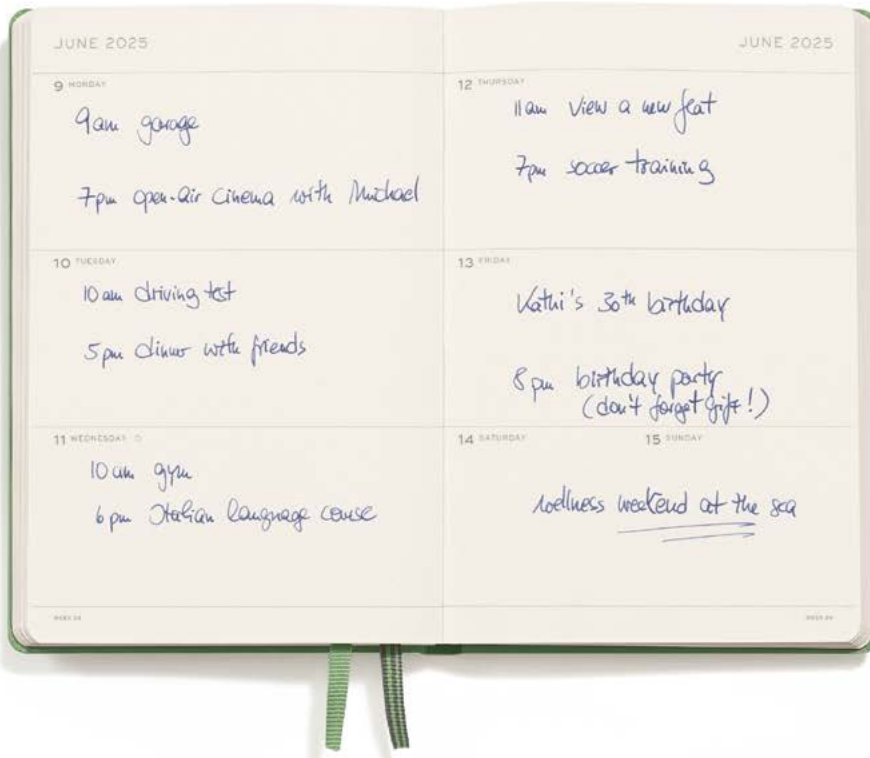 JUNE 2025
9 MONDAY
9am garage
7pm open-air cinema with Michael
10 TUESDAY
10am driving test
5pm dinner with friends
11 WEDNESDAY
10am gym
6pm Italian language course
JUNE 2025
12 THURSDAY
11am view a new flat
7pm soccer training
13 FRIDAY
Kathi's 30th birthday
8pm birthday party
(don't forget gift!)
14 SATURDAY 15 SUNDAY
wellness weekend at the sea
WEEK 24
WEEK 24